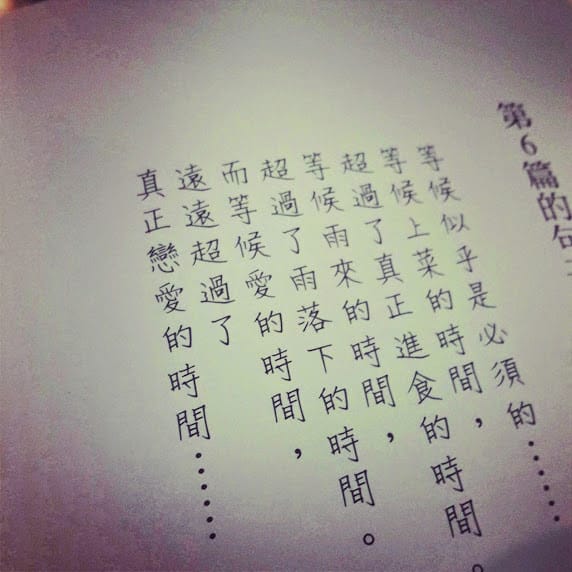 第6篇的句
等候似乎是必須的……
等候上菜的時間，
超過了真正進食的時間。
等候雨來的時間，
超過了雨落下的時間。
而等候愛的時間，
遠遠超過了
真正戀愛的時間……